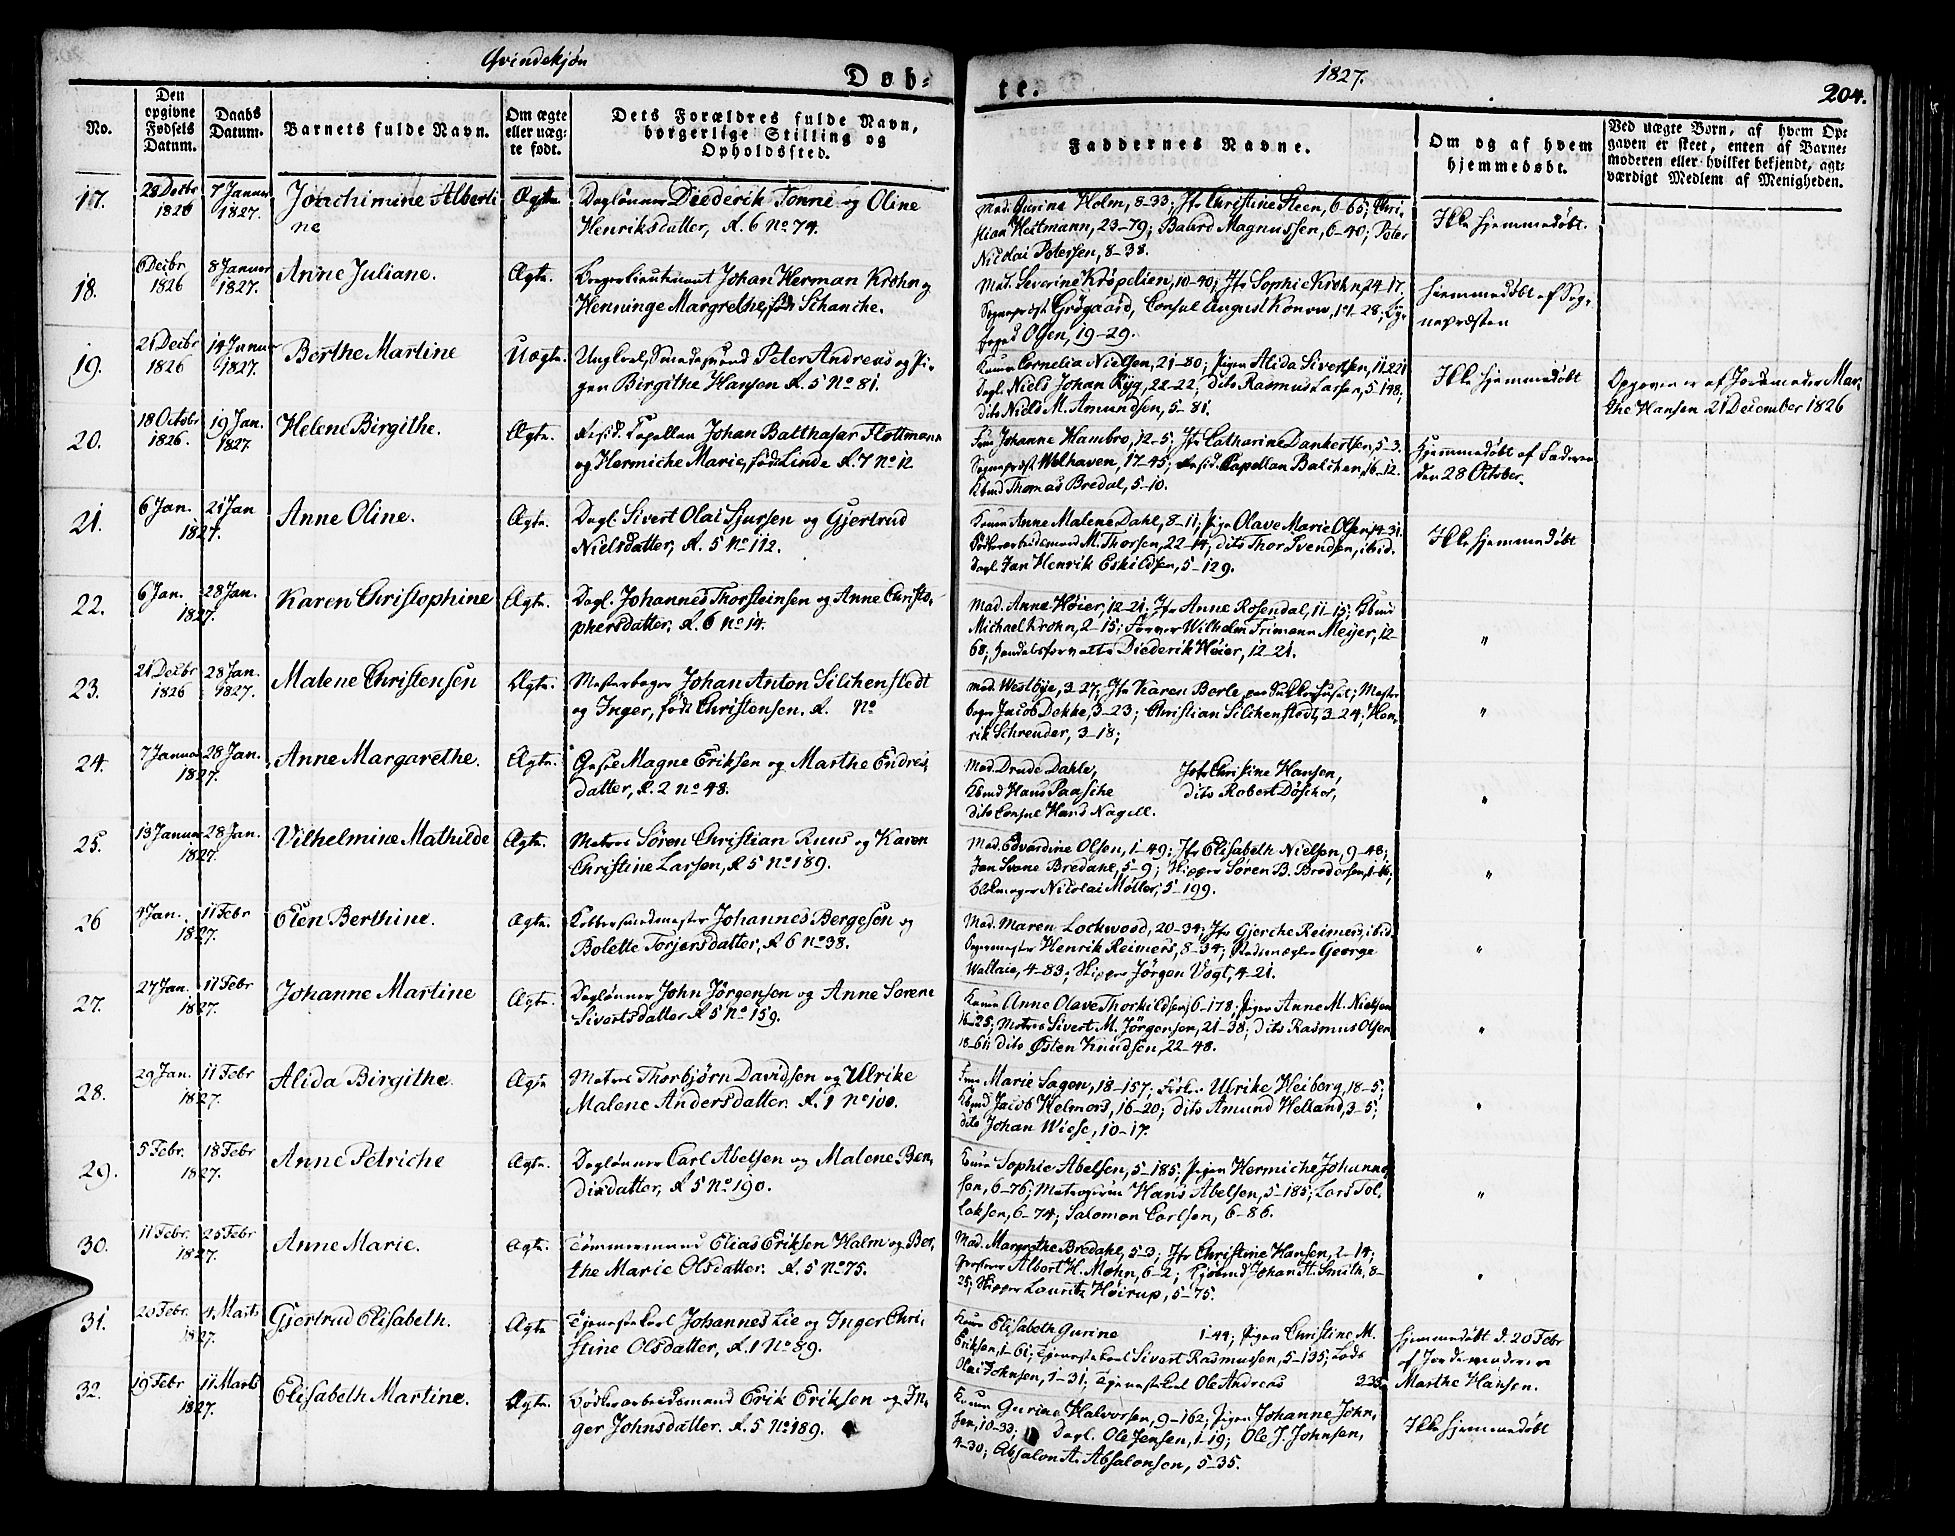 Qvindekjøn
Døb-
te.
1827.
204.
No.
Den opgivne Fødsels Datum.
Daabs Datum.
Barnets fulde Navn.
Om ægte eller uæg-te født.
Dets Forældres fulde Navn, borgerlige Stilling og Opholdssted.
Faddernes Navne.
Om og af hvem hjemmedøbt.
Ved uægte Børn, af hvem Op-gaven er skeet, enten af Barne-moderen eller hvilket bekjendt, agt-værdigt Medlem af Menigheden.
17.
28 Decbr 1826
7 Januar 1827.
Joachimine Alberti
ne
Ægte
Daglønner Diederik Tonne og Oline
Henriksdatter, R. 6 No 74.
Mad. Gurine Holm, 8-33; Jfr Christine Steen, 6-65; Chri-
stian Hertmann, 23-79; Baard Magnussen, 6-40; Peter
Nicolai Petersen, 8-38.
Ikke hjemmedøbt.
18.
6 Decbr 1826
8 Januar 1827.
Anne Juliane.
Ægte.
Borgerlieutenant Johan Herman Krohn og
Henninge Margrethe, født Schanche.
Mad. Severine Krøpelien, 10-40; Jfr Sophie Krohn, 24-17.
Sognepræst Grøgaard, Consul August Konow, 1-28;
foged Olsen, 19-29.
Hjemmedøbt af Sog-
nepræsten
19.
21 Decbr 1826
14 Januar 1827.
Berthe Martine
Uægte.
Ungkarl, Smedesvend Peter Andreas og Pi-
gen Birgithe Hansen R. 5 No 81.
Kone Cornelia Nielsen, 21-80; Pigen Alida Sivertsen, 11-221
Dagl. Niels Johan Ryg, 22-22; dito Rasmus Larsen, 5-148;
dito Niels M. Amundsen, 5-81.
Ikke hjemmedøbt
Opgaven er af Jordmoder Mar-
the Hansen 21 December 1826
20.
18 Octobr 1826.
19 Jan. 1827.
Helene Birgithe.
Ægte.
Resid. Capellan Johan Balthasar Flottmann
og Hermiche Marie, født Linde R. 7 No 12
Frue Johanne Hambro, 12-5; Jfr Catharine Dankertsen, 5-3.
Sognepræst Welhaven, 17-45; Resid. Capellan Balchen, 16-12.
Kbmd Thomas Bredal, 5-10.
Hjemmedøbt af Faderen
den 28 October.
21.
6 Jan.
21 Jan
1827.
Anne Oline.
Ægte.
Dagl. Sivert Olai Sjursen og Gjertrud
Nielsdatter, R. 5 No 112.
Kone Anne Malene Dahl, 8-11; Pige Olave Marie Olsen, 14-31.
Bødkerarbeidsmand M. Thorsen, 22-14; dito Thor Svendsen, ibid.
Dagl. Jan Henrik Eskildsen, 5-129.
Ikke hjemmedøbt
22.
6 Jan.
28 Jan.
1827.
Karen Christophine
Ægte.
Dagl. Johannes Thorsteinsen og Anne Christo-
phersdatter, R. 6 No 14.
Mad. Anne Høier, 12-21; Jfr Anne Rosendal, 11-15; Kbmd
Michael Krohn, 2-15; Farver Wilhelm Frimann Meyer, 12
68; Handelsforvalter Diederik Høier, 12-21.
"
23.
21 Decbr 1826
28 Jan. 1827.
Malene Christensen
Ægte.
Mesterbager Johan Anton Silchenstedt
og Inger, født Christensen. R. No
Mad. Westbye, 3-27; Jfr Karen Berle, paa Sukkerhuset; Mester
bager Jacob Dekke, 3-23; Christian Silchenstedt, 3-24; Hen-
rik Schreuder, 3-18;
"
24.
7 Januar
28 Jan.
1827.
Anne Margarethe.
Ægte.
Magne Eriksen og Marthe Endres-
datter, R. 2 No 48.
Mad. Drude Dahle, Jfr Christine Hansen,
Kbmd Hans Paasche dito Robert Døscher,
dito Consul Hans Nagell.
"
25.
13 Januar
28 Jan.
1827.
Vilhelmine Mathilde
Ægte.
Matros Søren Christian Ruus og Karen
Christine Larsen, R. 5 No 189.
Mad. Edvardine Olsen, 1-49; Jfr Elisabeth Nielsen, 9-48;
Jan Svane Bredahl, 5-9; Skipper Søren B. Brodersen, 1-16;
Blokmager Nicolai Møller, 5-199.
"
26
4 Jan.
11 Febr
1827.
Elen Berthine.
Ægte.
Kobbersmedmester Johannes Bergesen og
Bolette Torjersdatter, R 6 No 38.
Mad. Maren Lockwood, 20-34; Jfr Gjerche Reimers, ibid.
Bagermester Henrik Reimers, 8-34; Stadsmægler George
Wallace, 4-83; Skipper Jørgen Vogt, 4-21.
"
27.
27 Jan.
11 Febr
1827.
Johanne Martine
Ægte.
Daglønner John Jørgensen og Anne Sorene
Sivertsdatter R 5 No 159.
Kone Anne Olave Thorkildsen, 6-178; Pigen Anne M. Nielsen
16-25; Matros Sivert M. Jörgensen, 21-38; dito Rasmus Olsen
18-61; dito Østen Knudsen, 22-48.
"
28.
29 Jan.
11 Febr
1827.
Alida Birgithe.
Ægte
Matros Thorbjørn Davidsen og Ulrike
Malene Andersdatter. R. 1 No 100.
Frue Marie Sagen, 18-157; Frøken Ulrike Heiberg, 18-5;
Kbmd Jacob Helmers, 16-20; dito Amund Helland, 3-5;
dito Johan Wiese, 10-17.
"
29.
5 Febr.
18 Febr
1827.
Anne Petriche
Ægte.
Daglønner Carl Abelsen og Malene Ben-
disdatter, R 5 No 190.
Kone Sophie Abelsen, 5-185; Pigen Hermiche Johanne-
sen, 6-76; Matroserne Hans Abelsen, 5-185; Lars Tol-
laksen, 6-74; Salomon Carlsen, 6-86.
"
30.
11 Febr.
25 Febr
1827.
Anne Marie.
Ægte.
Tømmermand Elias Eriksen Halm og Ber-
the Marie Olsdatter. R. 5 No 75.
Mad. Margrethe Bredahl, 5-3; Jfr Christine Hansen, 2-14;
Albert H. Mohn, 6-2; Kjøbmd Johan H. Smith, 8-
25; Skipper Lauritz Høirup, 5-75.
"
31.
20 Febr.
4 Marts
1827.
Gjertrud Elisabeth.
Ægte
Tjenestekarl Johannes Lie og Inger Chri-
stine Olsdatter, R. 1 No 89.
Kone Elisabeth Gurine 1-44; Pigen Christine M.
Eriksen, 1-61; Tjenestekarl Sivert Rasmussen, 5-135; Lods
Olai Johnsen, 1-31; Tjenestekarl Ole Andreas 3-23.
Hjemmedøbt d. 20 Febr
af Jordemoderen
Marthe Hansen.
32.
19 Febr
11 Marts
1827.
Elisabeth Martine.
Ægte.
Bødkerarbeidsmand Erik Eriksen og In-
ger Johnsdatter. R. 5 No 189.
Kone Gurine Halvorsen, 9-162; Pigen Johanne John-
sen, 10-33; Dagl. Ole Jensen, 1-19; Ole J. Johnsen,
4-30; Absalon A. Absalonsen, 5-35.
Ikke hjemmedøbt